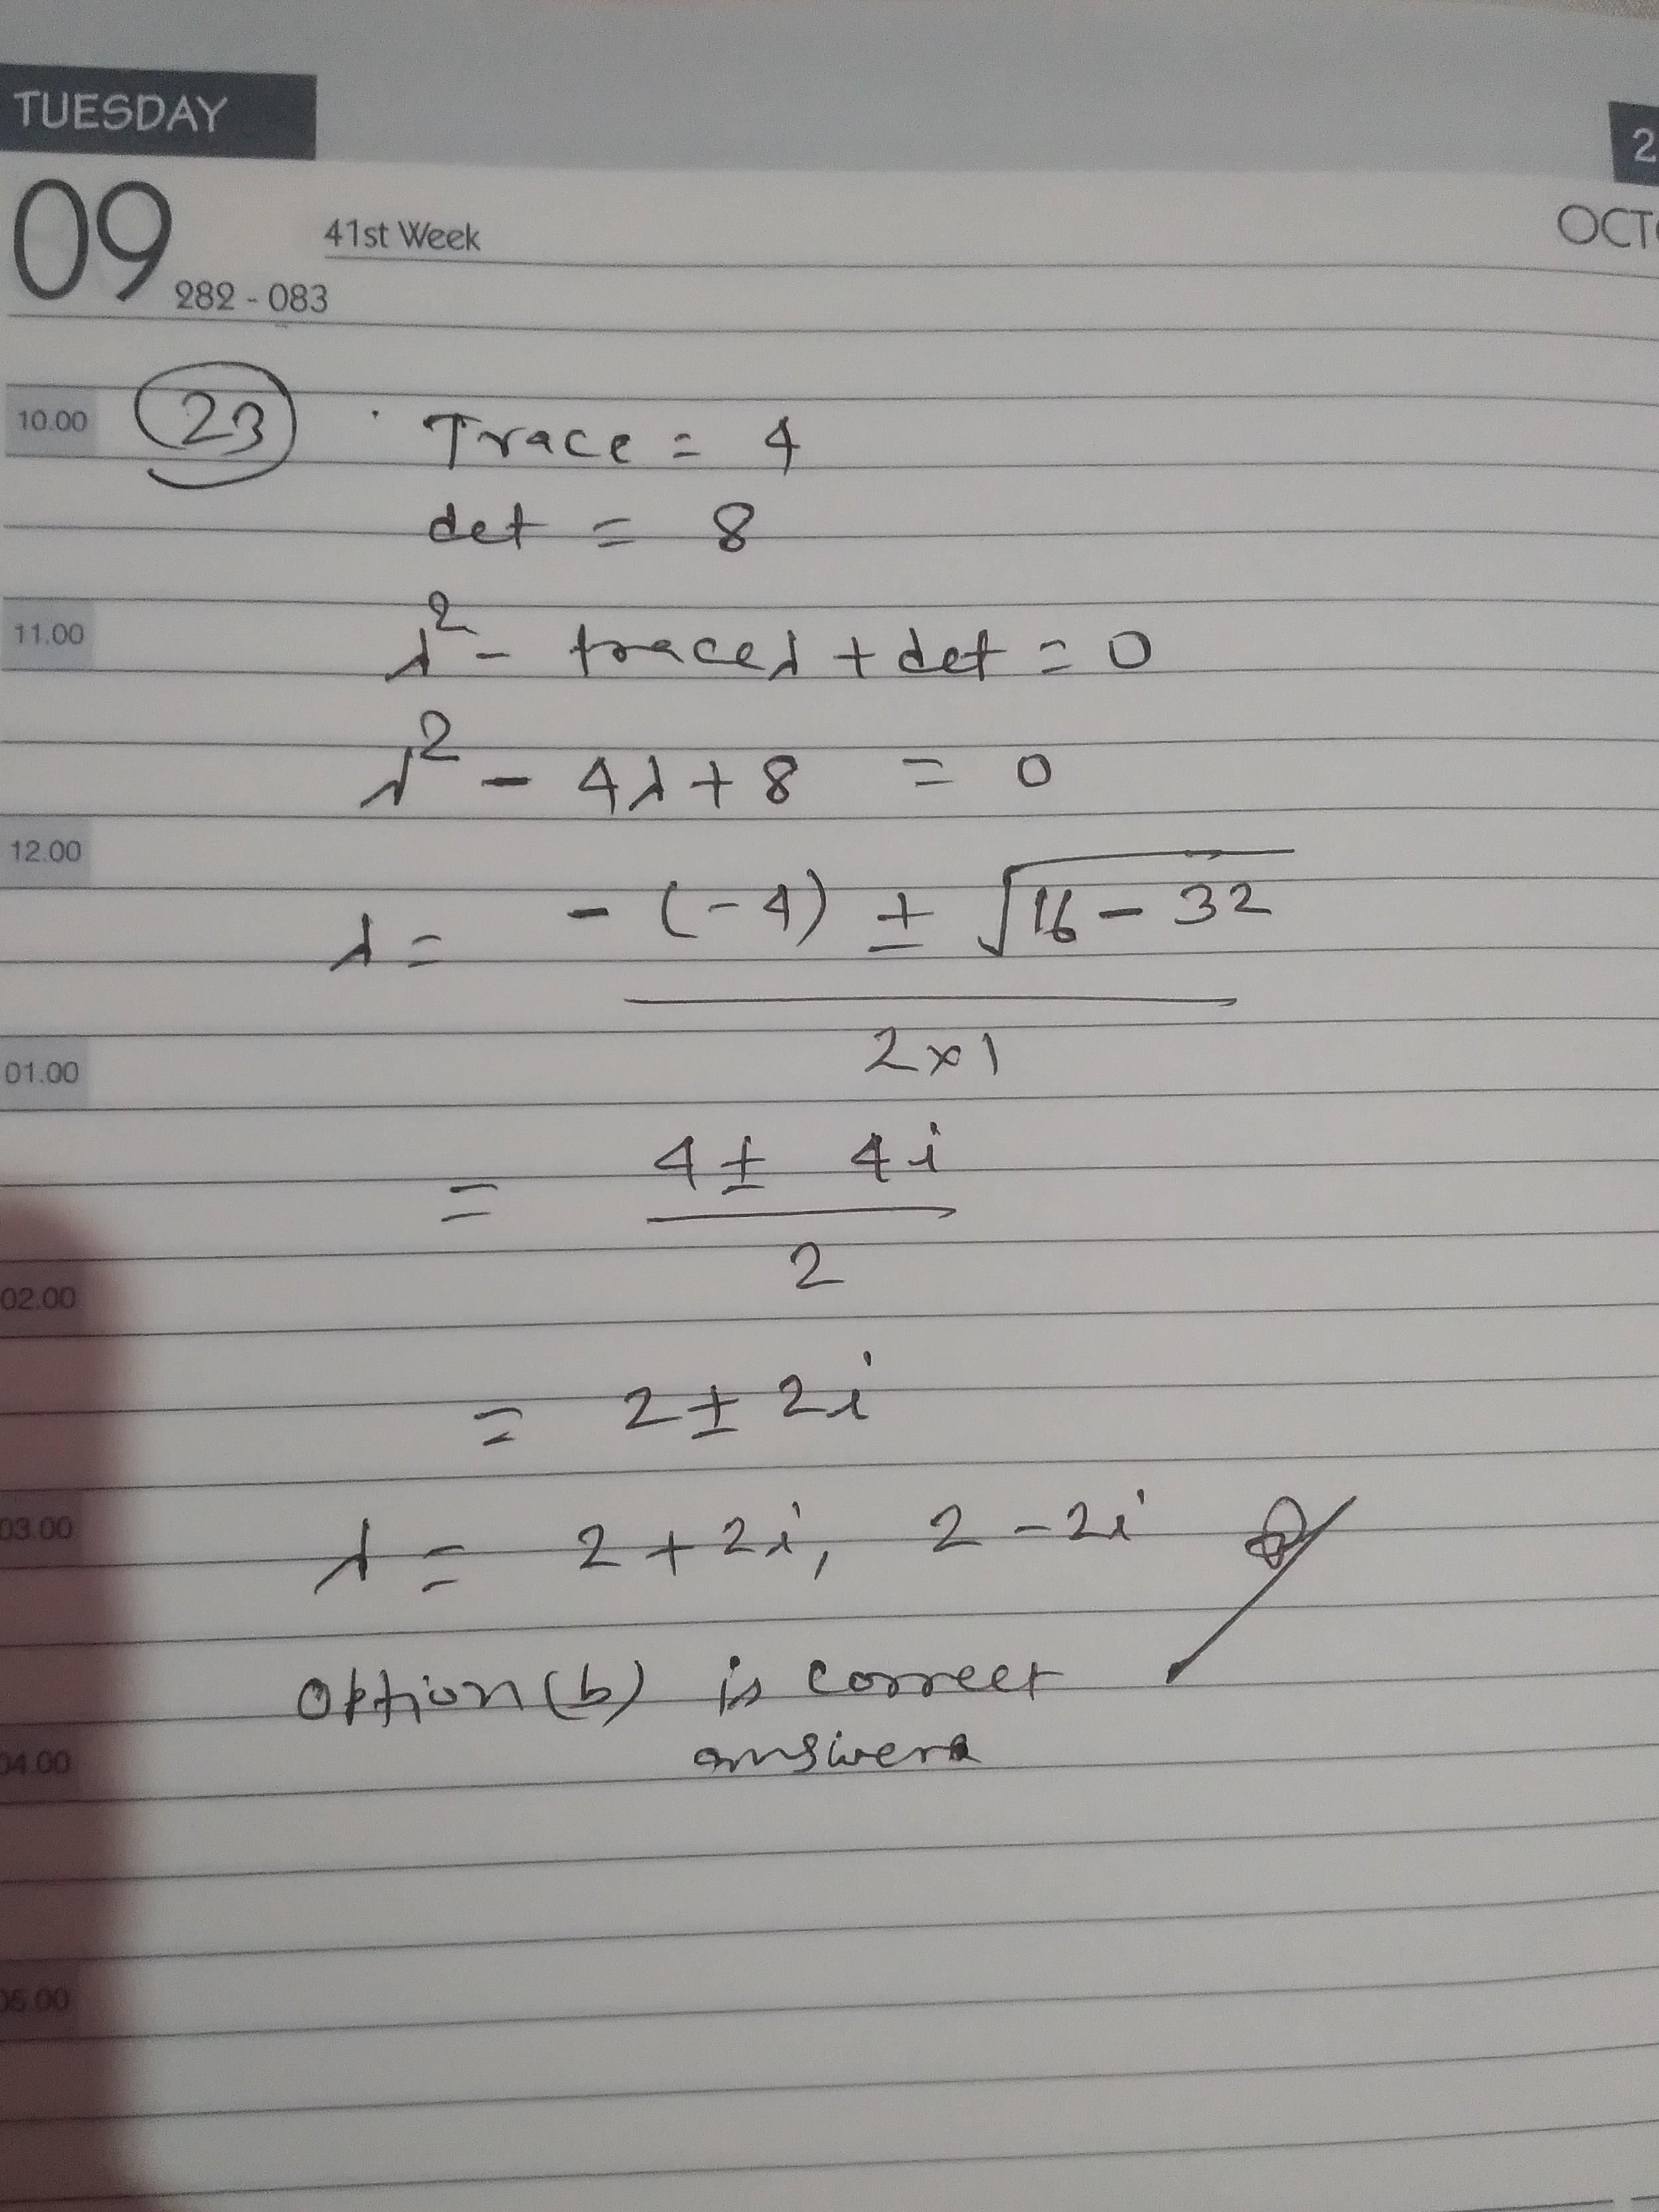 TUESDAY
2
09
41st Week
282 - 083
10.00
23 Trace = 4
det = 8
11.00
λ² - traceλ + det = 0
λ² - 4λ + 8 = 0
12.00
λ = - (-4) ± √16 - 32
2×1
01.00
= 4 ± 4i
2
02.00
= 2 ± 2i
03.00
λ = 2 + 2i, 2 - 2i
option (b) is correct
answer
04.00
05.00